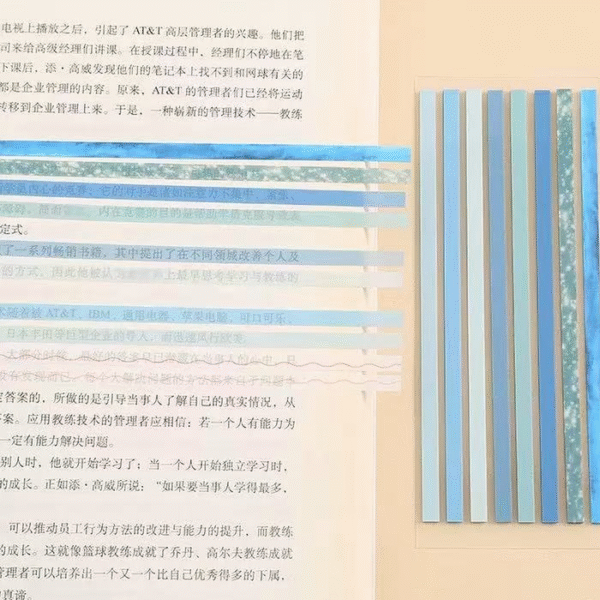 电视上播放之后，引起了 AT&T 高层管理者的兴趣。他们把
司来给高级经理们讲课。在授课过程中，经理们不停地在笔
下课后，添·高威发现他们的笔记本上找不到和网球有关的
都是企业管理的内容。原来，AT&T 的管理者们已经将运动
转移到企业管理上来。于是，一种崭新的管理技术——教练
定式。
了一系列畅销书籍，其中提出了在不同领域改善个人及
的方式，因此他被认为 上最早思考学习与教练的
术随着被 AT&T、IBM、通用电器、苹果电脑、可口可乐、
定答案的，所做的是引导当事人了解自己的真实情况，从
答案。应用教练技术的管理者应相信：若一个人有能力为
一定有能力解决问题。
别人时，他就开始学习了；当一个人开始独立学习时，
的成长。正如添·高威所说：“如果要当事人学得最多，
可以推动员工行为方法的改进与能力的提升，而教练
的成长。这就像篮球教练成就了乔丹、高尔夫教练成就
管理者可以培养出一个又一个比自己优秀得多的下属，
的真谛。